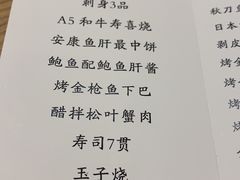 刺身3品
A5和牛寿喜烧
安康鱼肝最中饼
鲍鱼配鲍鱼肝酱
烤金枪鱼下巴
醋拌松叶蟹肉
寿司7贯
玉子烧
秋刀
日本
剥皮